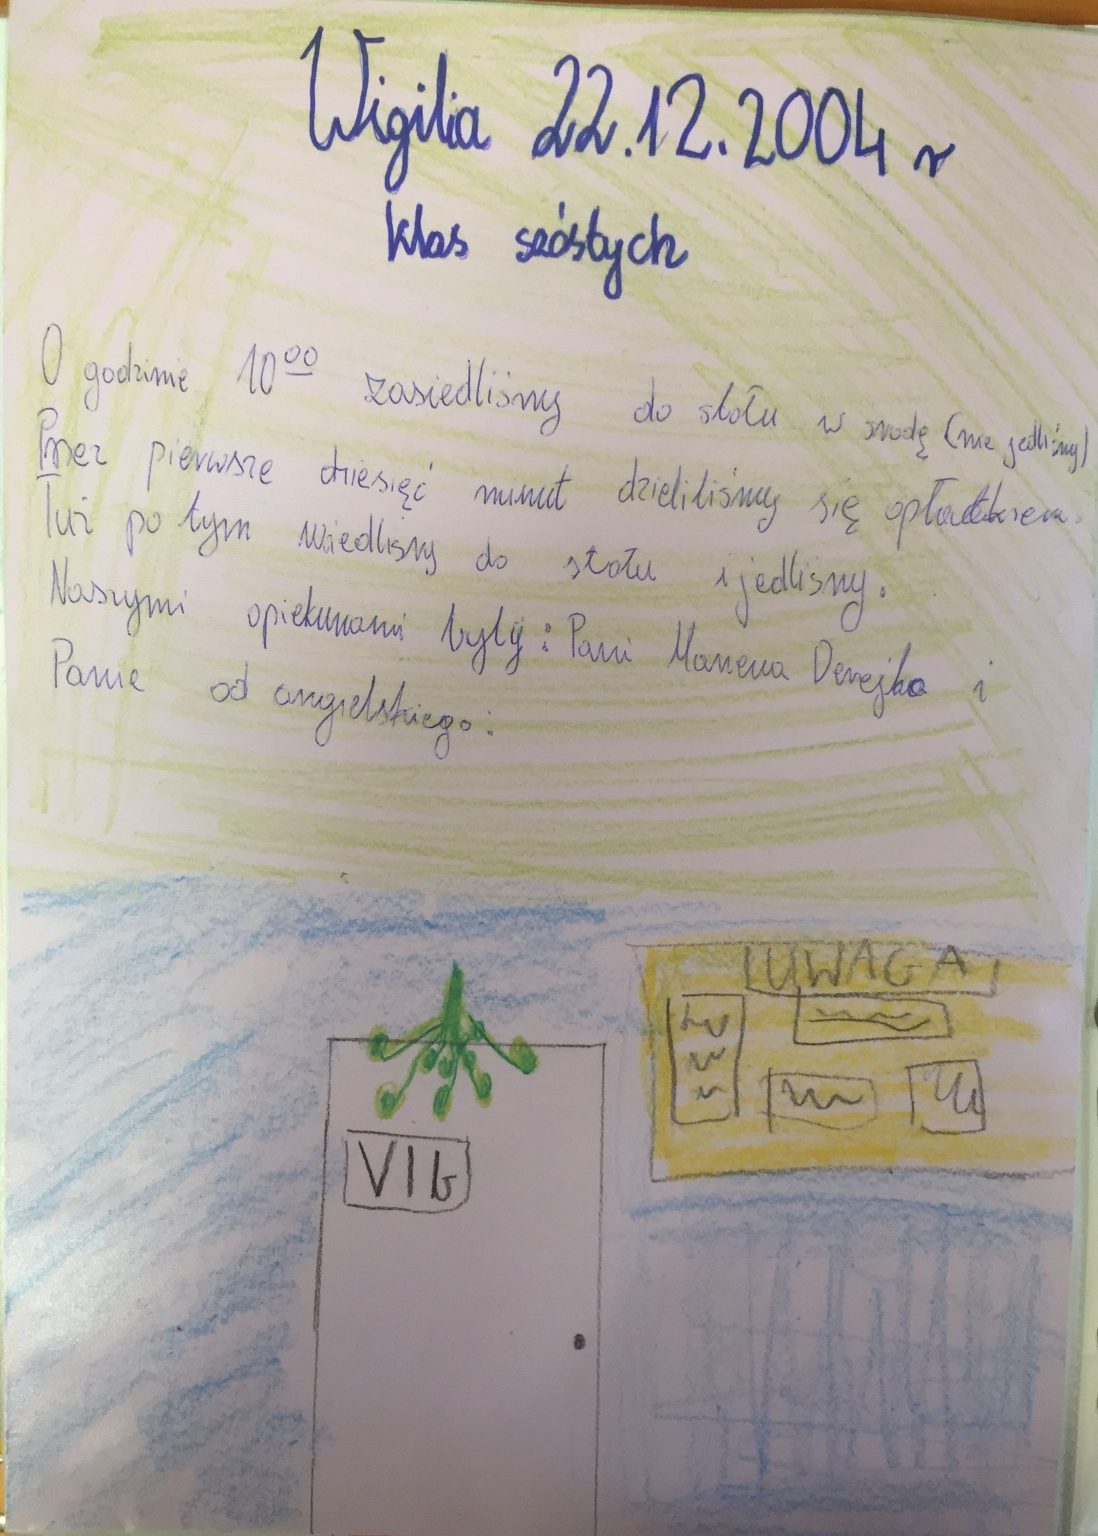 Wigilia 22.12.2004 r
klas szóstych
O godzinie 10⁰⁰ zasiedliśmy do stołu w srodę (nie jedliśmy)
Przez pierwsze dziesięć minut dzieliliśmy się opłatkiem.
Tuż po tym usiedlismy do stołu i jedlismy.
Naszymi opiekunami były: Pani Marzena Derejko i
Panie od angielskiego.
UWAGA
VI b